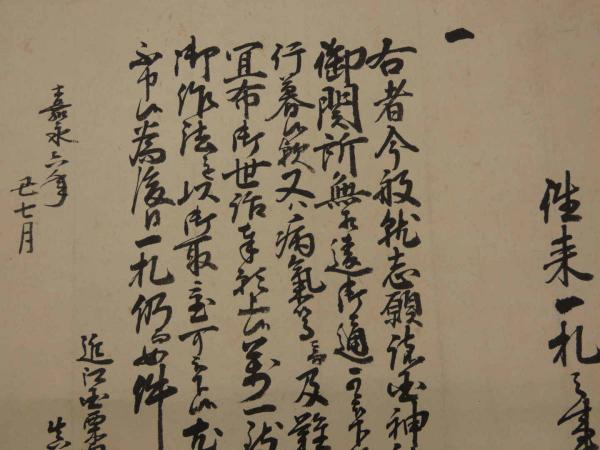 往来一札之事
一
右者今般就志願諸国神
御関所無相違御通可被下
行暮候歟又ハ病気等ニ而及難
宜布御世話奉頼上候万一
御作法を以御取置可被下候尤
不申候為後日一札仍而如件
嘉永六年
丑七月
近江国栗